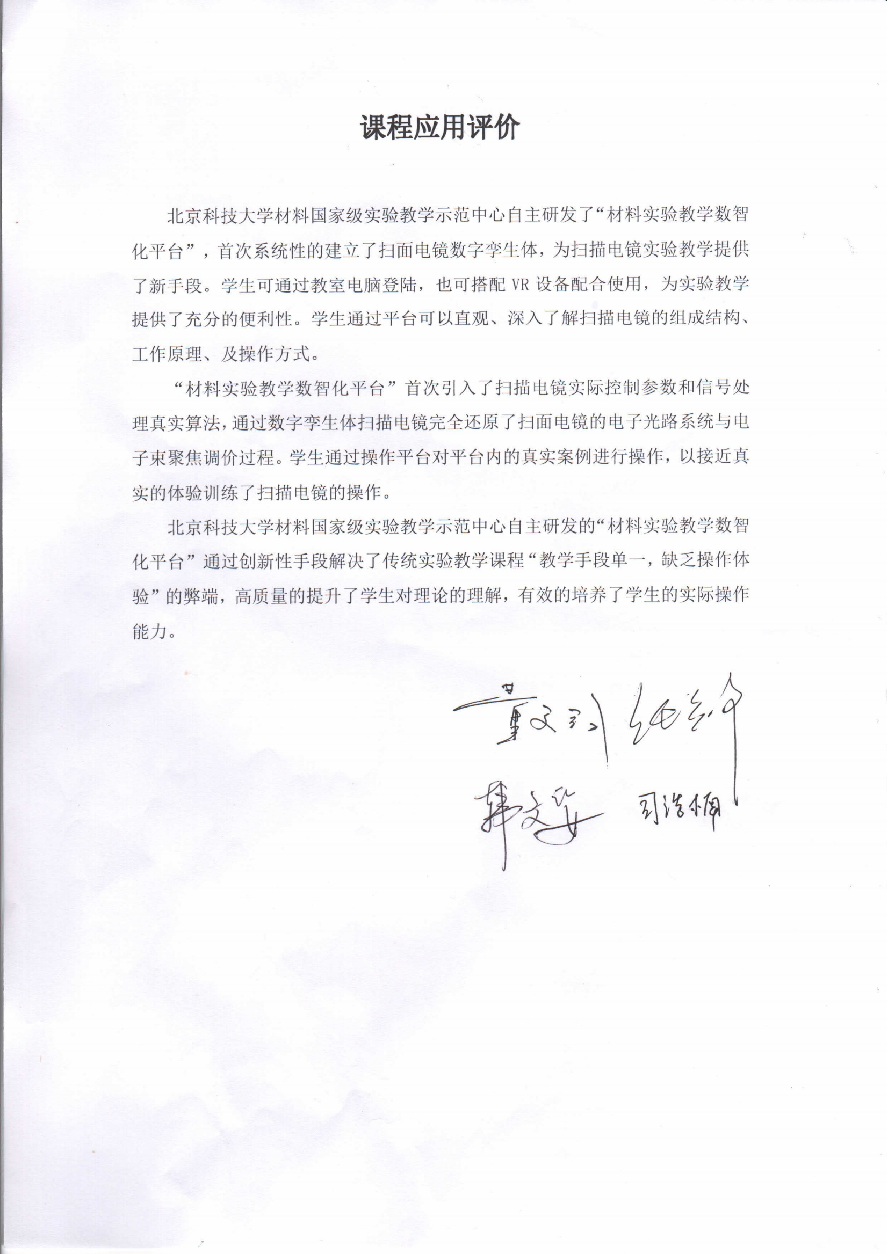 课程应用评价
北京科技大学材料国家级实验教学示范中心自主研发了“材料实验教学数智
化平台”，首次系统性的建立了扫面电镜数字孪生体，为扫描电镜实验教学提供
了新手段。学生可通过教室电脑登陆，也可搭配 VR 设备配合使用，为实验教学
提供了充分的便利性。学生通过平台可以直观、深入了解扫描电镜的组成结构、
工作原理、及操作方式。
“材料实验教学数智化平台”首次引入了扫描电镜实际控制参数和信号处
理真实算法，通过数字孪生体扫描电镜完全还原了扫面电镜的电子光路系统与电
子束聚焦调价过程。学生通过操作平台对平台内的真实案例进行操作，以接近真
实的体验训练了扫描电镜的操作。
北京科技大学材料国家级实验教学示范中心自主研发的“材料实验教学数智
化平台”通过创新性手段解决了传统实验教学课程“教学手段单一，缺乏操作体
验”的弊端，高质量的提升了学生对理论的理解，有效的培养了学生的实际操作
能力。